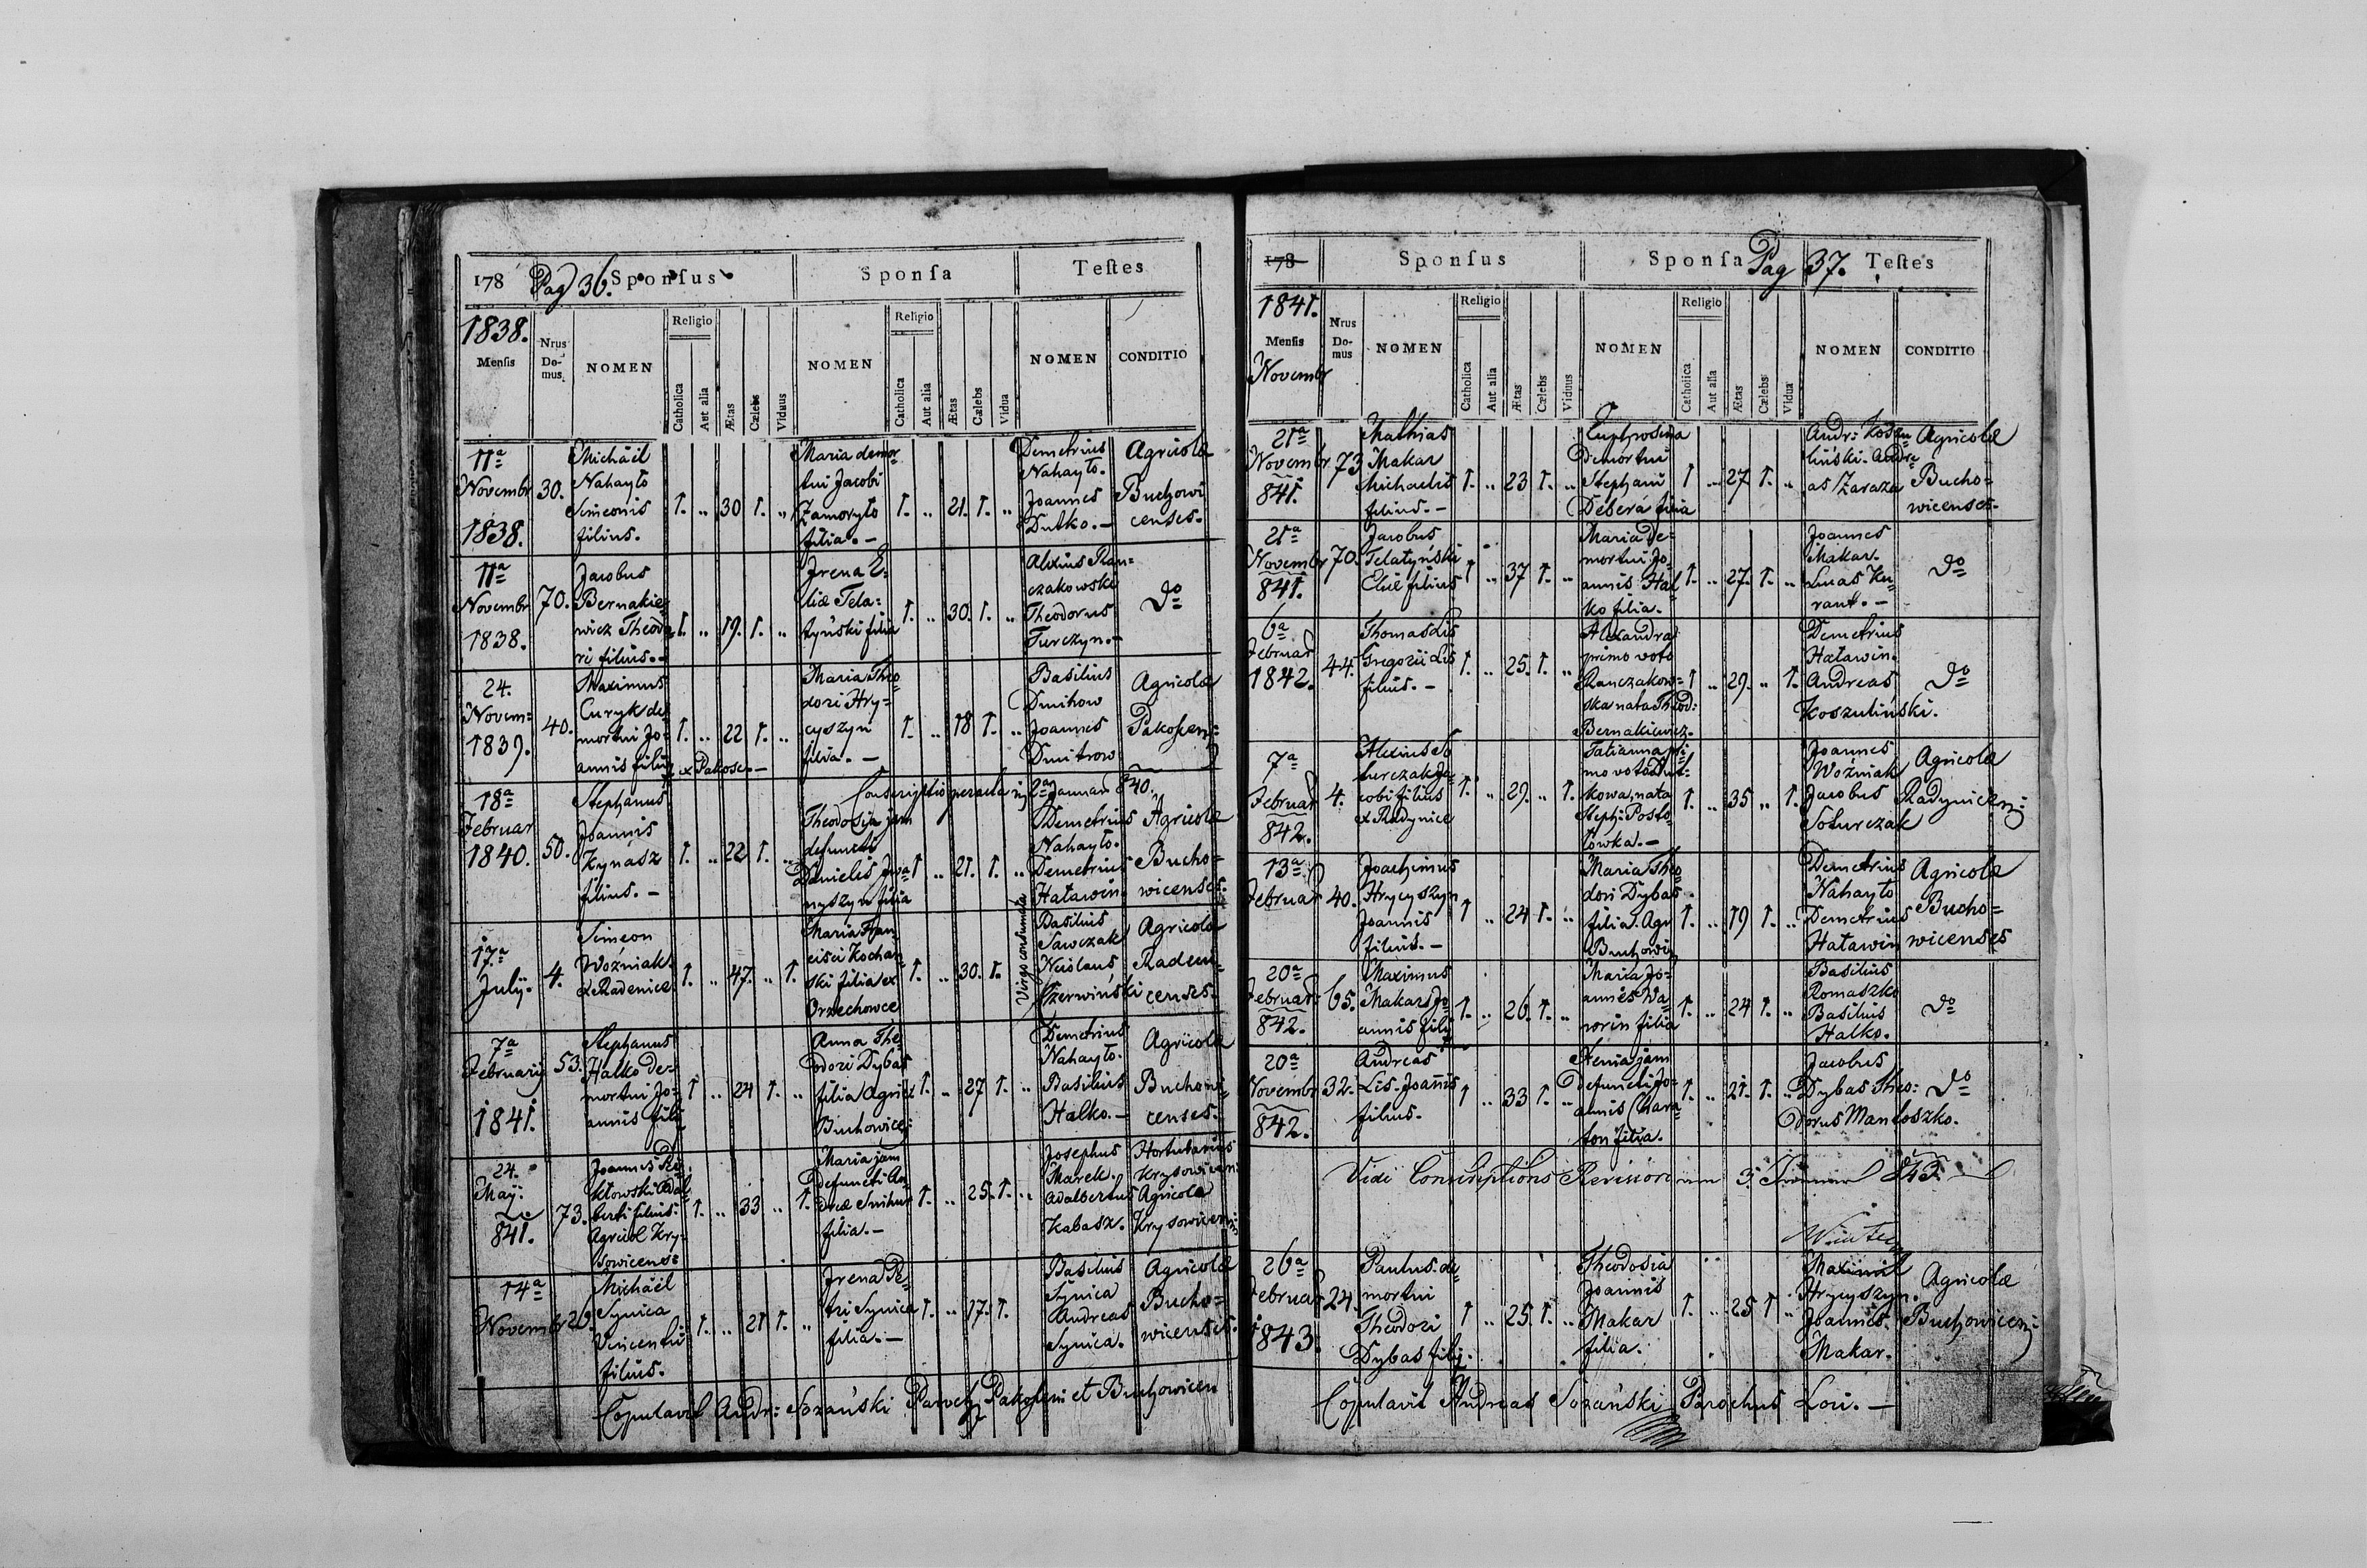 178 Pag 36. Sponsus
Sponsa
Testes
1838.
Mensis
Nrus Domus
NOMEN
Religio
Catholica
Aut alia
Ætas
Cælebs
Viduus
NOMEN
Religio
Catholica
Aut alia
Ætas
Cælebs
Vidua
NOMEN
CONDITIO
11a
Novembr
1838.
30.
Michäel
Nahayło
Simeonis
filius.
1. .. 30 1. ..
Maria demor
tui Jacobi
Zamoryło
filia. —
1. .. 21. 1. ..
Demetrius
Nahayło.
Joannes
Dutko. —
Agricolæ
Buchowi
censes.
11a
Novembr
1838.
70.
Jacobus
Bernakie=
wicz Theodo
ri filius. —
1. .. 19. 1. ..
Irena E=
liæ Tela=
tyński filia
1. .. 30. 1. ..
Alexius Ran=
czakowski
Theodorus
Turczyn. —
do
24.
Novem=
1839.
40.
Maximus
Curyk de
mortui Jo=
annis filius
ex Pakosc —
1. .. 22 1. ..
Maria Theo
dori Hry=
cyszyn
filia. —
1. .. 18 1. ..
Basilius
Dmitrow
Joannes
Dmitrow
Agricolæ
Pakoscen=
Conscriptio peracta 2a Januar 840.
18a
Februar
1840.
50.
Stephanus
Joannis
Kynasz
filius. —
1. .. 22 1. ..
Theodosia jam
defuncti
Danielis Iwa
nyszyn filia
1 .. 21. 1. ..
Demetrius
Nahayło.
Demetrius
Hatawin.
Agricolæ
Bucho=
wicenses.
17a
July.
4.
Simeon
Woźniak
ex Radenice
1. .. 47. .. 1.
Maria Fran
cisci Kochan
ski filia ex
Orzechowce
1. .. 30. 1.
Virgo
Basilius
Sawczak
Czerwinski
Agricolæ
Radeni=
censes.
7a
Februarij
1841.
53.
Stephanus
Halko de=
mortui Jo=
annis filij
1 .. 24 1. ..
Anna The
odori Dybas
filia Agric
Buchowice:
1. .. 27 1. ..
Demetrius
Nahayło.
Basilius
Halko. —
Agricolæ
Buchowi
censes.
24.
May.
841.
73.
Joannes
Adal
berti filius.
Agricol Kry
sowicens:
1. .. 33 .. 1.
Maria jam
Defuncti An
dreæ
filia. —
1. .. 25. 1. ..
Josephus
Marek.
Adalbertus
Kabasz.
Hortulanus
Krysowicen:
Agricola
Krysowicens:
14a
Novemb
26.
Michäel
Synica
Vincentii
filius.
1. .. 21 1. ..
Irena Pe=
tri Synica
filia. —
1. .. 17. 1.
Basilius
Synica
Andreas
Synica.
Agricolæ
Bucho=
wicenses.
Copulavit Andr: Sozański Paroch Pakoscen: et Buchowicen
178 Sponsus
Sponsa Pag 37. Testes
1841.
Mensis
Novembr
Nrus Domus
NOMEN
Religio
Catholica
Aut alia
Ætas
Cælebs
Viduus
NOMEN
Religio
Catholica
Aut alia
Ætas
Cælebs
Vidua
NOMEN
CONDITIO
21a
Novembr
841.
73
Mathias
Makar
Michaelis
filius. —
1. .. 23 1. ..
Euphrosina
Demortui
Stephani
Debera filia
1 .. 27 1. ..
Andr: Koszu
liński. Andre
as Zaraza
Agricolæ
Bucho=
wicenses.
21a
Novembr
841.
70.
Jacobus
Telatyński
Eliæ filius
1 .. 37 1. ..
Maria De=
mortui Jo=
annis Hal
ko filia.
1. .. 27. 1. ..
Joannes
Makar.
Lucas Ku=
rant. —
do
6a
Februar
1842.
44.
Thomas Lis
Gregorii Lis
filius. —
1. .. 25. 1. ..
Alexandra
primo voto
Ranczakow=
ska nata Theod:
Bernakiewicz.
1 .. 29. .. 1.
Demetrius
Hatawin.
Andreas
Koszuliński.
do
7a
Februar
842.
4.
Alexius So
turczak Ja
cobi filius
ex Radynice
1. .. 29. .. 1.
Tatianna pri
mo voto Dut=
kowa, nata
Steph: Posto
łówka. —
1. .. 35 .. 1.
Joannes
Woźniak
Jacobus
Soturczak
Agricolæ
Radynicen:
13a
Februar
40.
Joachimus
Hrycyszyn
Joannis
filius. —
1 .. 24 1. ..
Maria Theo
dori Dybas
filia. Agr
Buchowi
1. .. 19 1. ..
Demetrius
Nahayło
Demetrius
Hatawin
Agricolæ
Bucho=
wicenses
20a
Februar
842.
65.
Maximus
Makar Jo
annis filij
1. .. 26. 1. ..
Maria Jo=
annes Wa
worin filia
1. .. 24 1. ..
Basilius
Romaszko
Basilius
Halko.
do
20a
Novembr
842.
32.
Andreas
Lis. Joannis
filius.
1 .. 33 1. ..
Xenia jam
Defuncti Jo=
annis Chara
ton filia.
1. .. 21. 1. ..
Jacobus
Dybas Theo:
dorus Manłoszko.
do
Vidi Conscriptions Revisor 3. 843.
26a
Februar
1843.
24.
Paulus de
mortui
Theodori
Dybas filij.
1 .. 25. 1. ..
Theodosia
Joannis
Makar
filia.
1. .. 25 1 ..
Maximil
Hrycyszyn.
Joannes.
Makar.
Agricolæ
Buchowicen:
Copulavit Andreas Sozański Parochus Loci. —